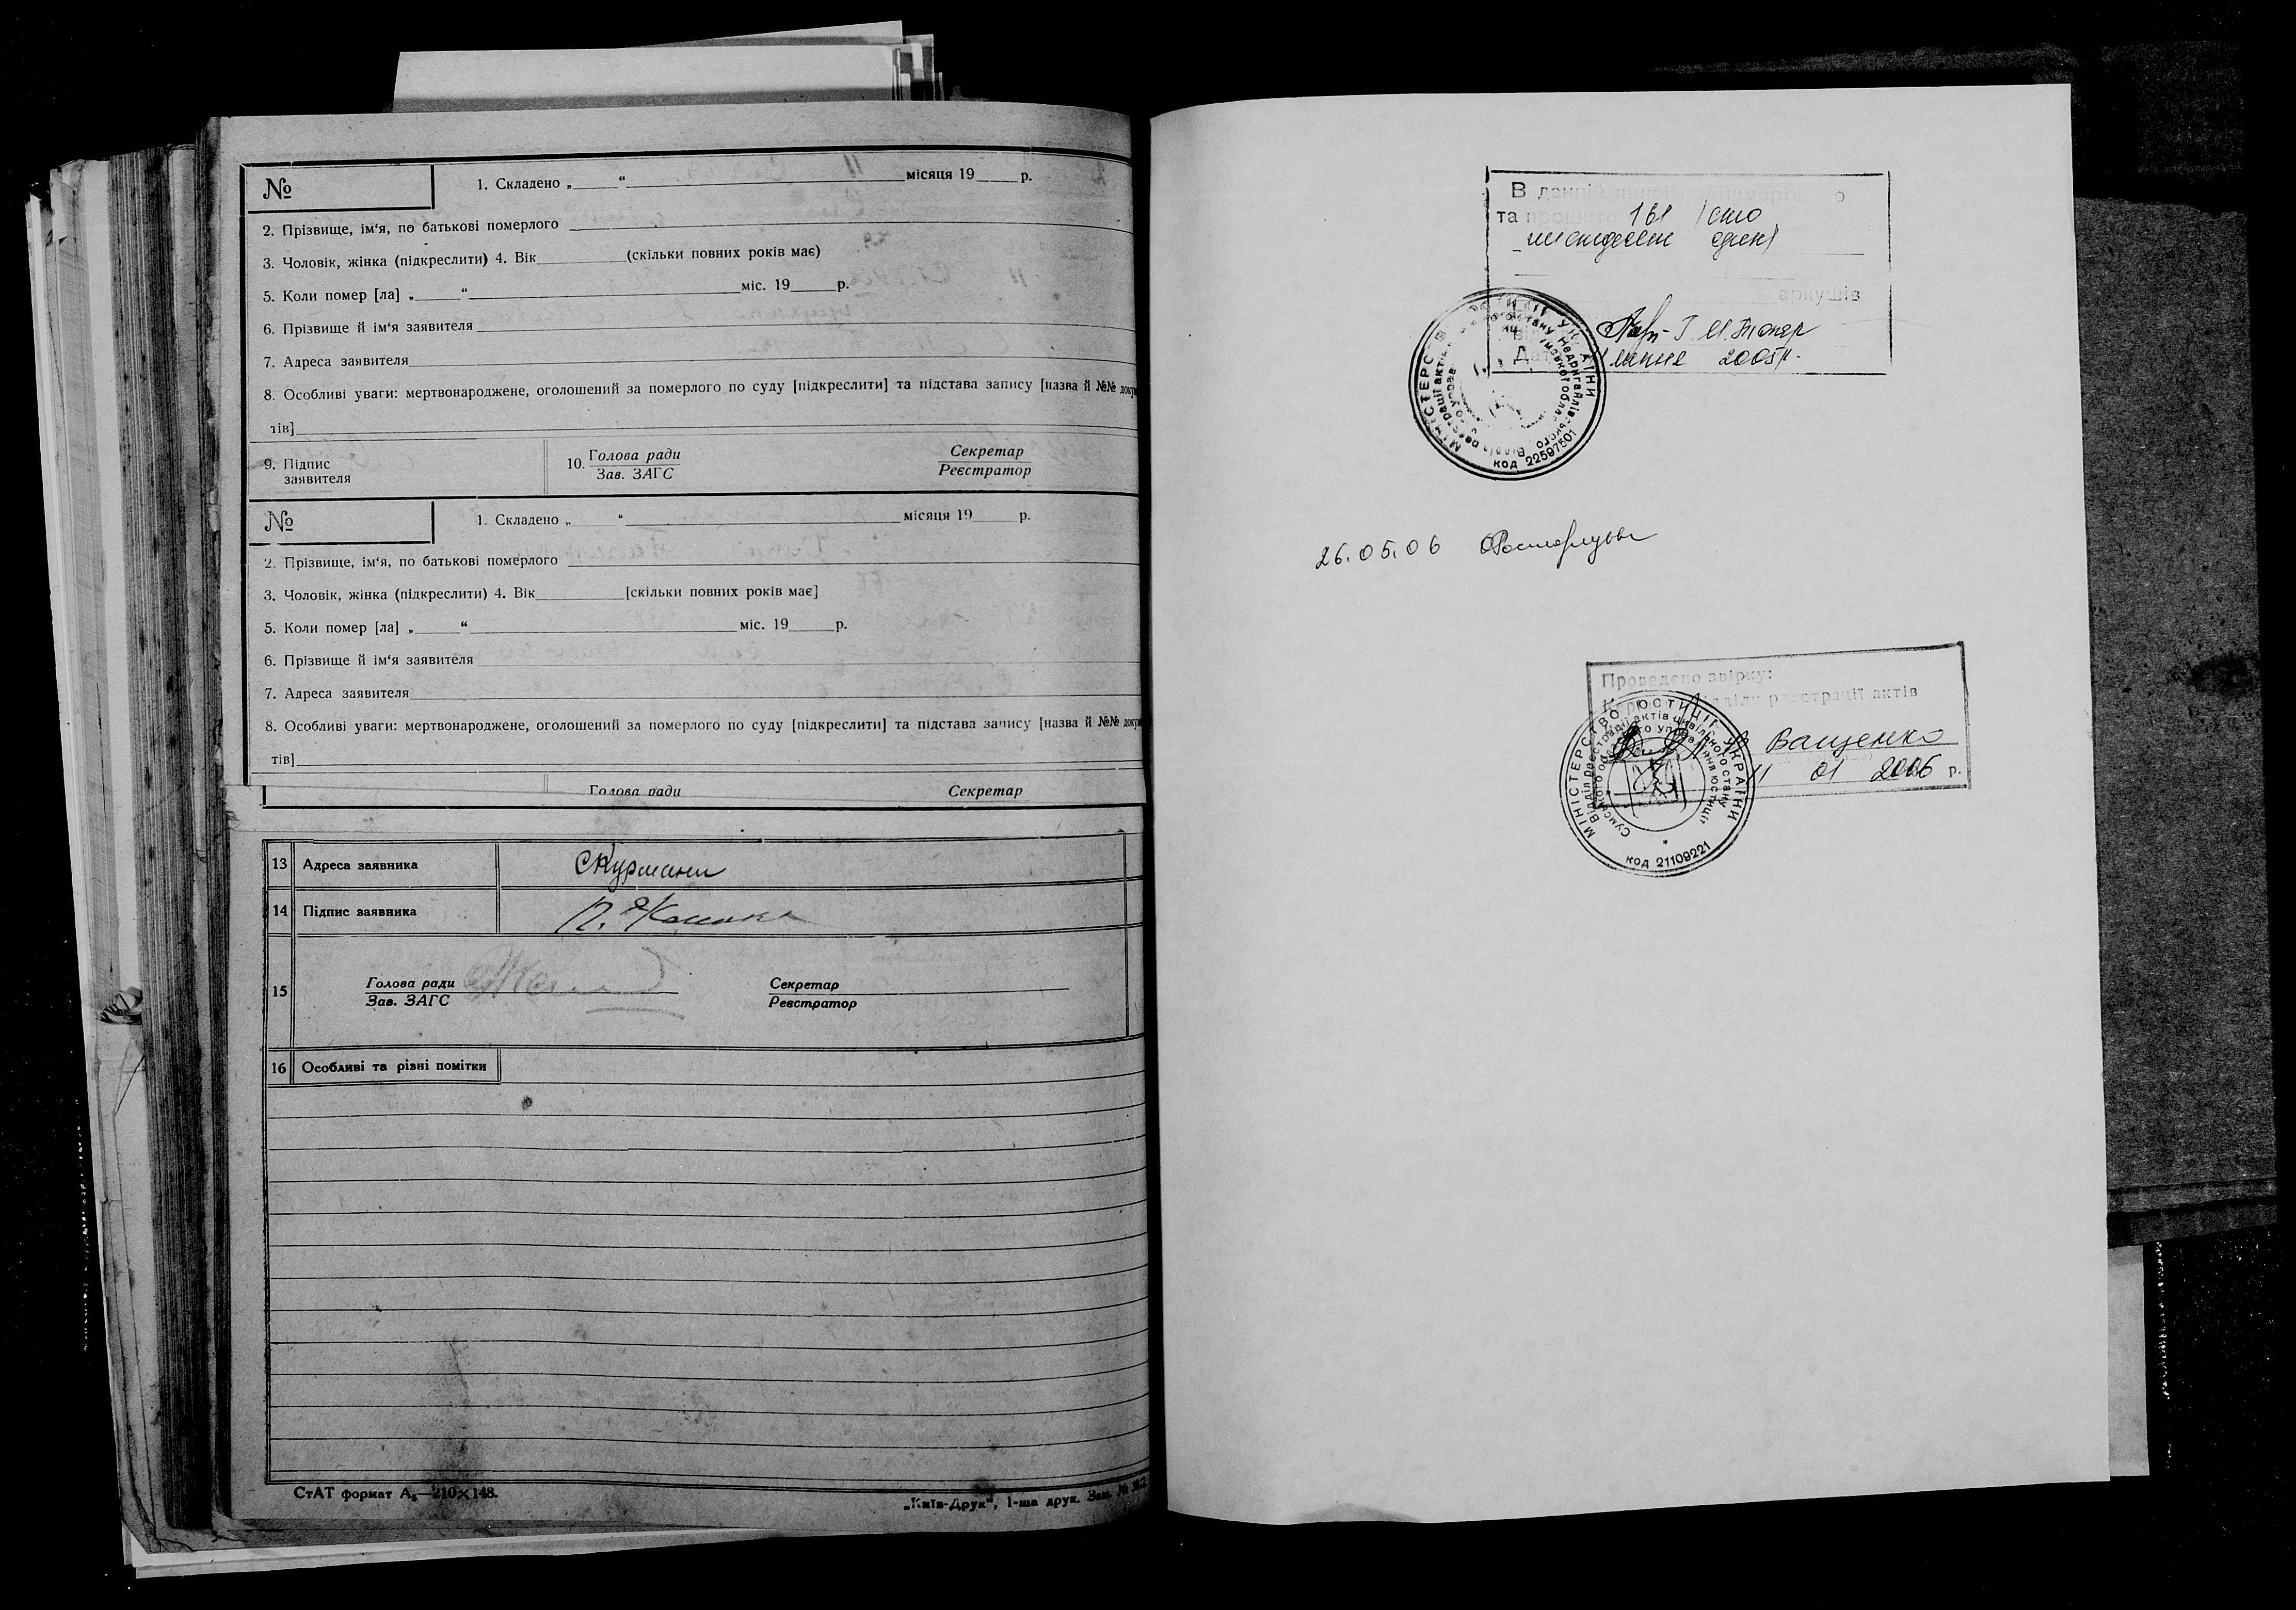 №
1. Складено „ “ місяця 19 р.
2. Прізвище, ім'я, по батькові померлого
3. Чоловік, жінка (підкреслити) 4. Вік (скільки повних років має)
5. Коли помер [ла] „ “ міс. 19 р.
6. Прізвище й ім'я заявителя
7. Адреса заявителя
8. Особливі уваги: мертвонароджене, оголошений за померлого по суду [підкреслити] та підстава запису [назва й №№ докум
тів]
9. Підпис заявителя
10. Голова ради
Зав. ЗАГС
Секретар
Реєстратор
№
1. Складено „ “ місяця 19 р.
2. Прізвище, ім'я, по батькові померлого
3. Чоловік, жінка (підкреслити) 4. Вік [скільки повних років має]
5. Коли помер [ла] „ “ міс. 19 р.
6. Прізвище й ім'я заявителя
7. Адреса заявителя
8. Особливі уваги: мертвонароджене, оголошений за померлого по суду [підкреслити] та підстава запису [назва й №№ докум
тів]
Голова ради Секретар
13 Адреса заявника с Курмани
14 Підпис заявника
15 Голова ради
Зав. ЗАГС
Секретар
Реєстратор
16 Особливі та різні помітки
СтАТ формат А₅—210×148.
„Київ-Друк", 1-ша друк. Зам. №
В данній
та прошито 161 (сто
шістдесят один)
аркушів
липня 2005р.
код 22597501
26.05.06
Проведено звірку:
відділу реєстрації актів
Ващенко
11 01 2006 р.
МІНІСТЕРСТВО ЮСТИЦІЇ УКРАЇНИ
Відділ реєстрації актів цивільного стану
Сумського обласного управління юстиції
код 21109221